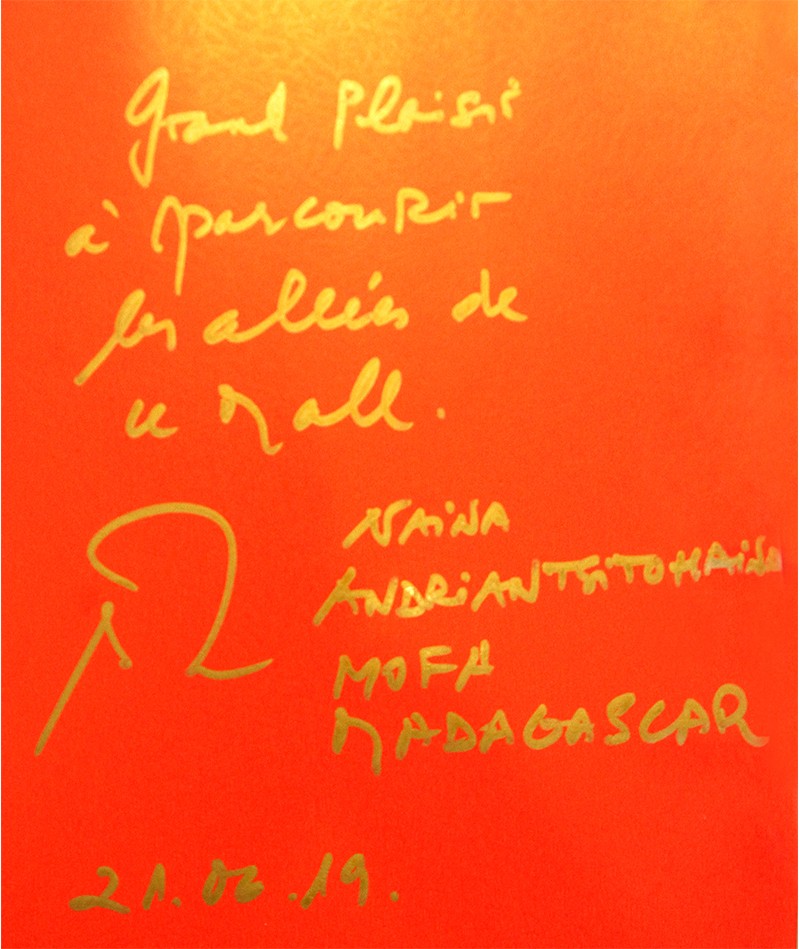 Grand Plaisir
à parcourir
les allées de
ce Mall.
NAINA
ANDRIANTSITOHAINA
MOFA
MADAGASCAR
21.06.19.